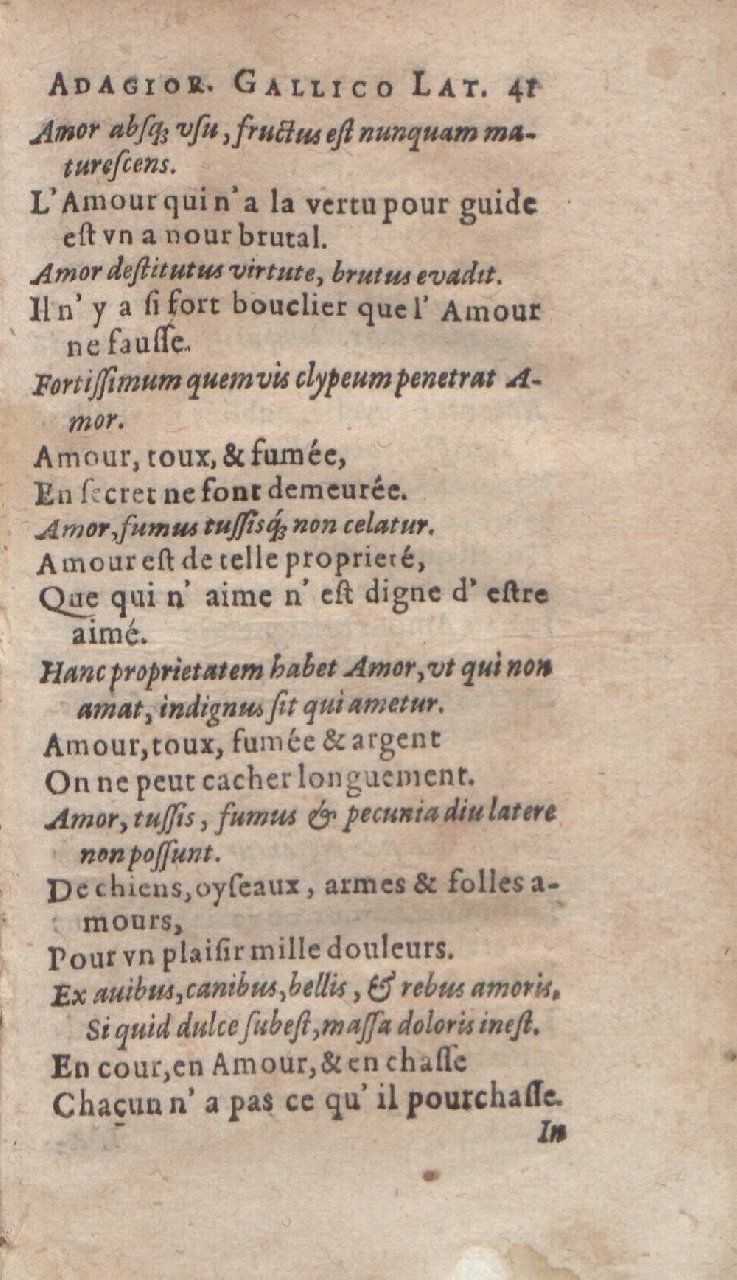 ADAGIOR. GALLICO LAT. 41
Amor abſq; vſu, fructus eſt nunquam ma-
tureſcens.
L'Amour qui n'a la vertu pour guide
eſt vn a nour brutal.
Amor deſtitutus virtute, brutus evadit.
Il n' y a ſi fort bouclier que l' Amour
ne fauſſe.
Fortiſſimum quemvis clypeum penetrat A-
mor.
Amour, toux, & fumée,
En ſecret ne font demeurée.
Amor, fumus tuſſisq́; non celatur.
Amour eſt de telle proprieté,
Que qui n' aime n' eſt digne d' eſtre
aimé.
Hanc proprietatem habet Amor, vt qui non
amat, indignus ſit qui ametur.
Amour, toux, fumée & argent
On ne peut cacher longuement.
Amor, tuſſis, fumus & pecunia diu latere
non poſſunt.
De chiens, oyſeaux, armes & folles a-
mours,
Pour vn plaiſir mille douleurs.
Ex auibus, canibus, bellis, & rebus amoris,
Si quid dulce ſubeſt, maſſa doloris ineſt.
En cour, en Amour, & en chaſſe
Chaçun n' a pas ce qu' il pourchaſſe.
In